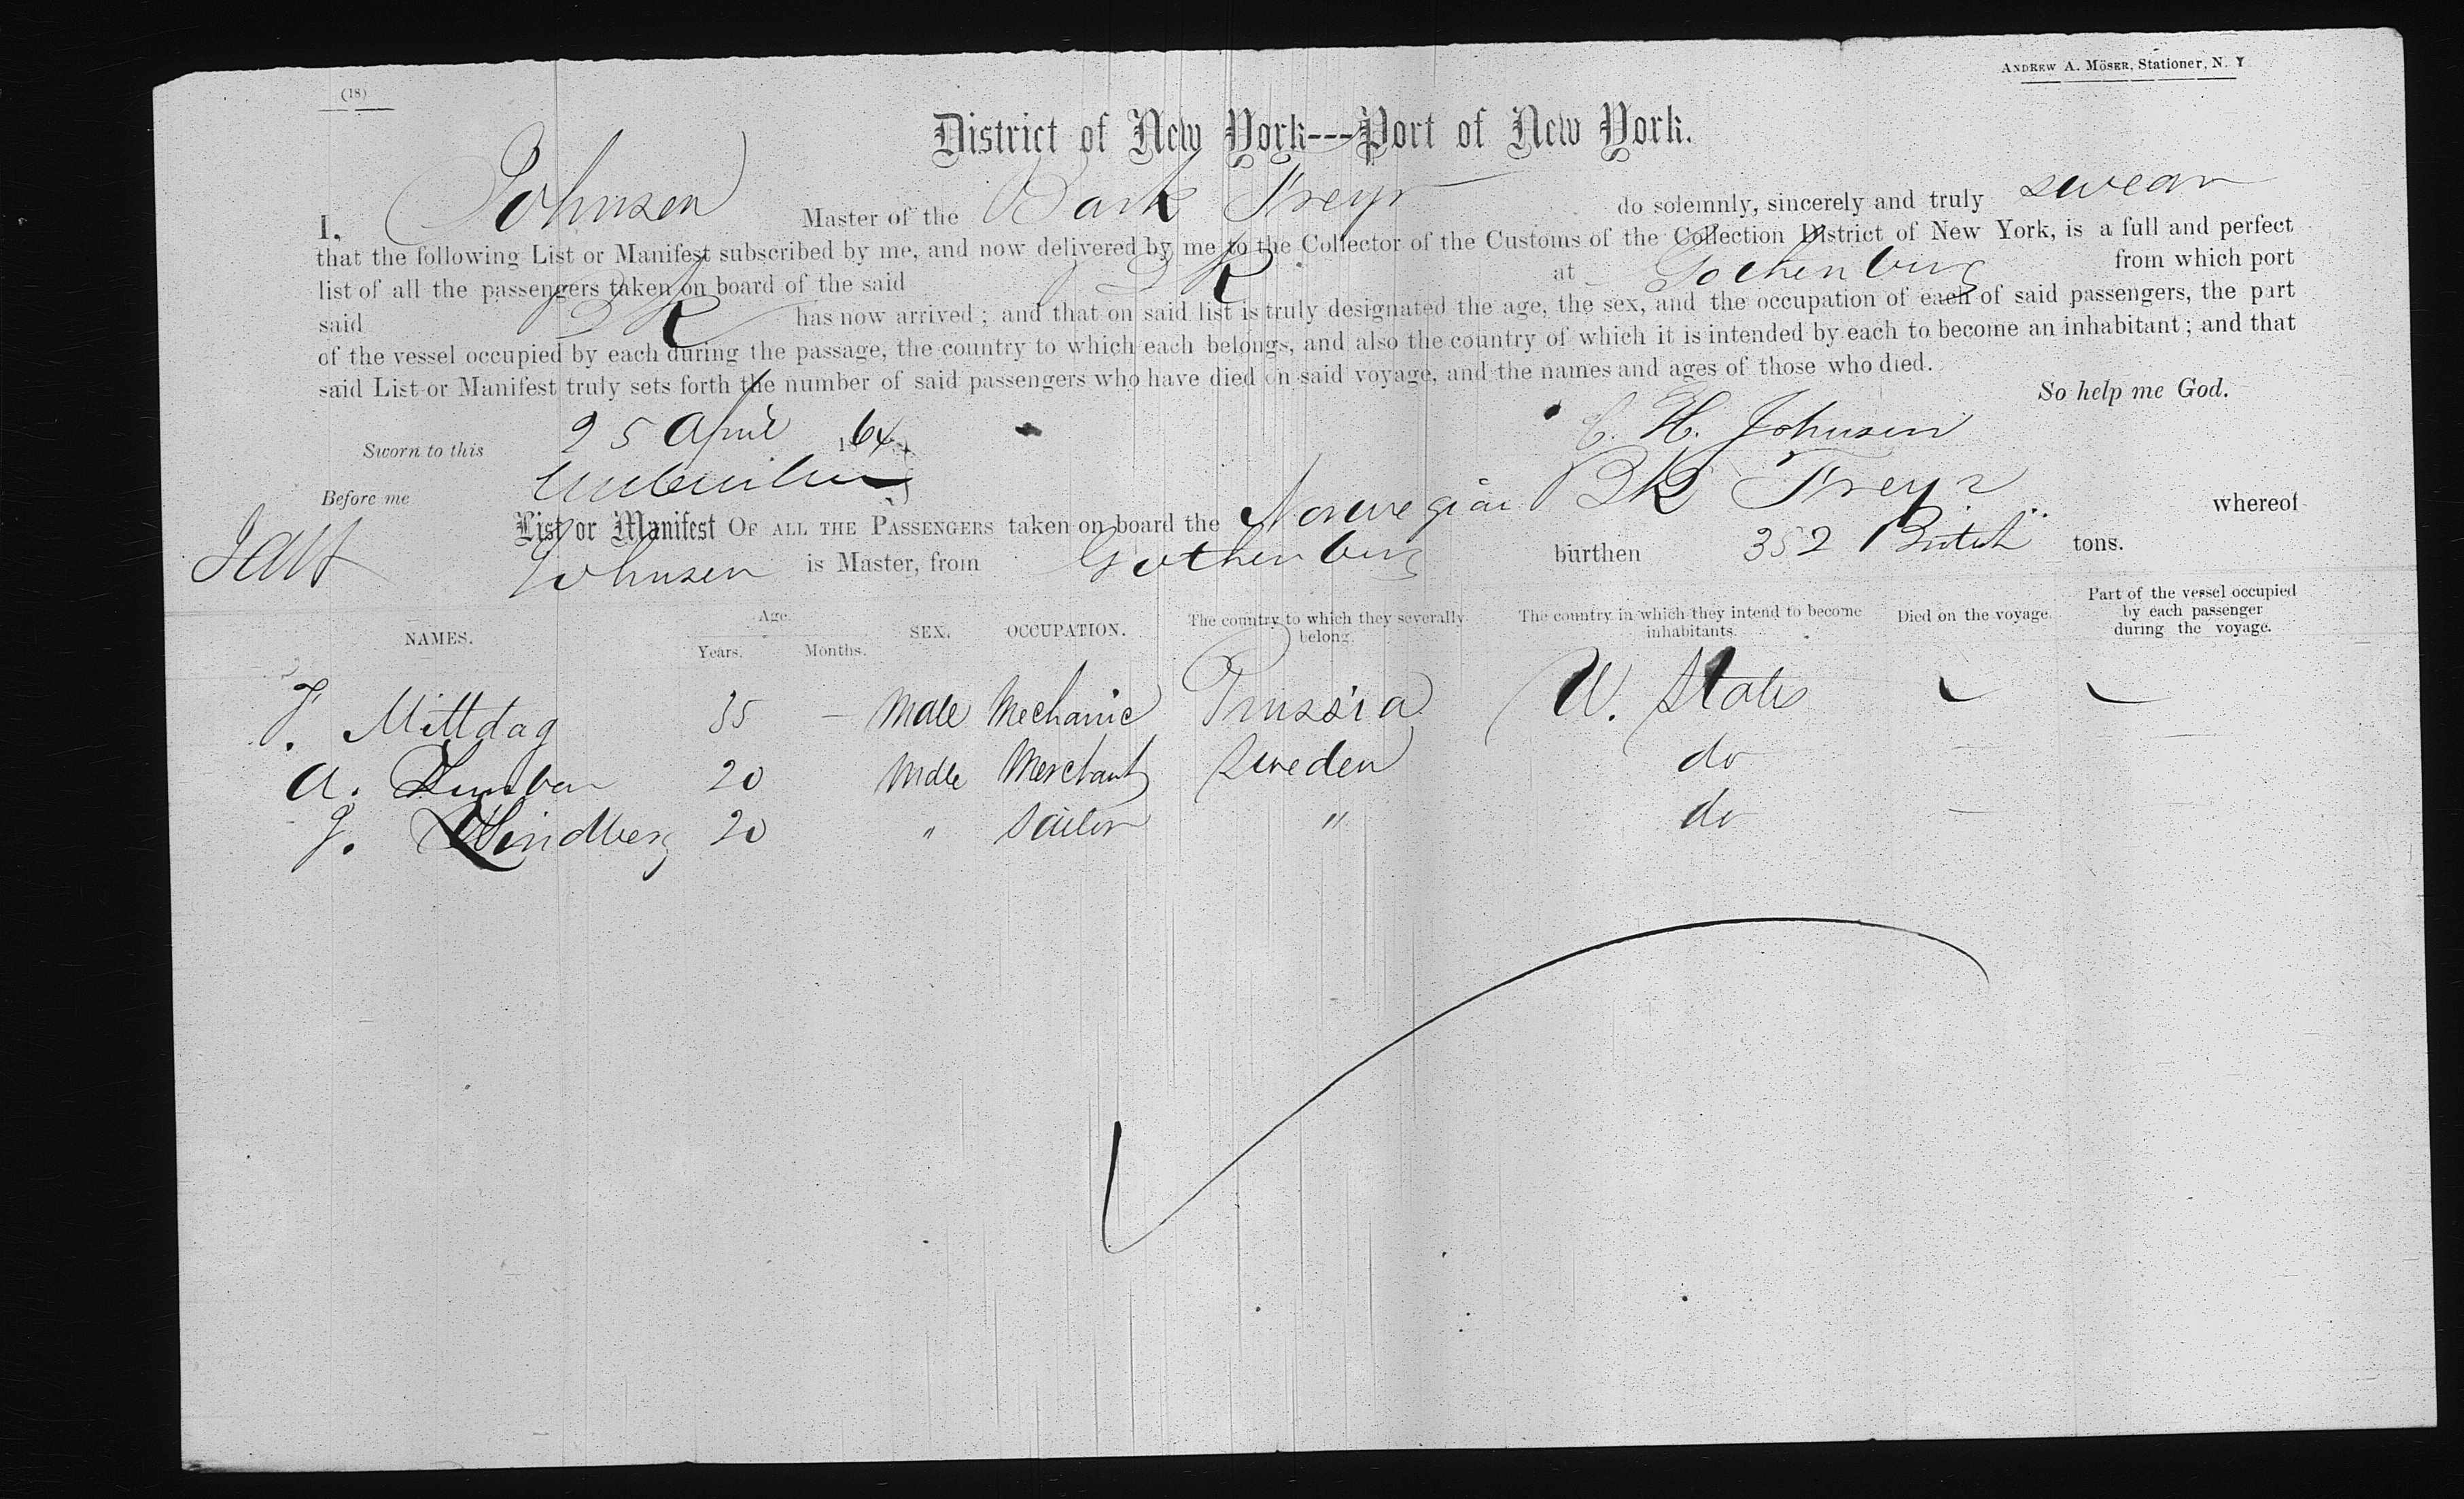 (18)
ANDREW A. MÖSER, Stationer, N. Y
District of New York---Port of New York.
I, Johnsen Master of the Bark Freyr do solemnly, sincerely and truly swear
that the following List or Manifest subscribed by me, and now delivered by me to the Collector of the Customs of the Collection District of New York, is a full and perfect
list of all the passengers taken on board of the said Bk at Gothenburg from which port
said Bk has now arrived; and that on said list is truly designated the age, the sex, and the occupation of each of said passengers, the part
of the vessel occupied by each during the passage, the country to which each belongs, and also the country of which it is intended by each to become an inhabitant; and that
said List or Manifest truly sets forth the number of said passengers who have died on said voyage, and the names and ages of those who died.
So help me God.
Sworn to this 25 April 1864
C. H. Johnsen
Before me
List or Manifest OF ALL THE PASSENGERS taken on board the Norwegian Bk Freyr whereof
Johnsen is Master, from Gothenburg burthen 352 British tons.
NAMES. Age. Years. Months. SEX. OCCUPATION. The country to which they severally belong. The country in which they intend to become inhabitants. Died on the voyage. Part of the vessel occupied by each passenger during the voyage.
F. Mittdag 35 – Male Mechanic Prussia U. States
A. 20 Male Merchant Sweden do –
J. Lindberg 20 " Sailor " do –